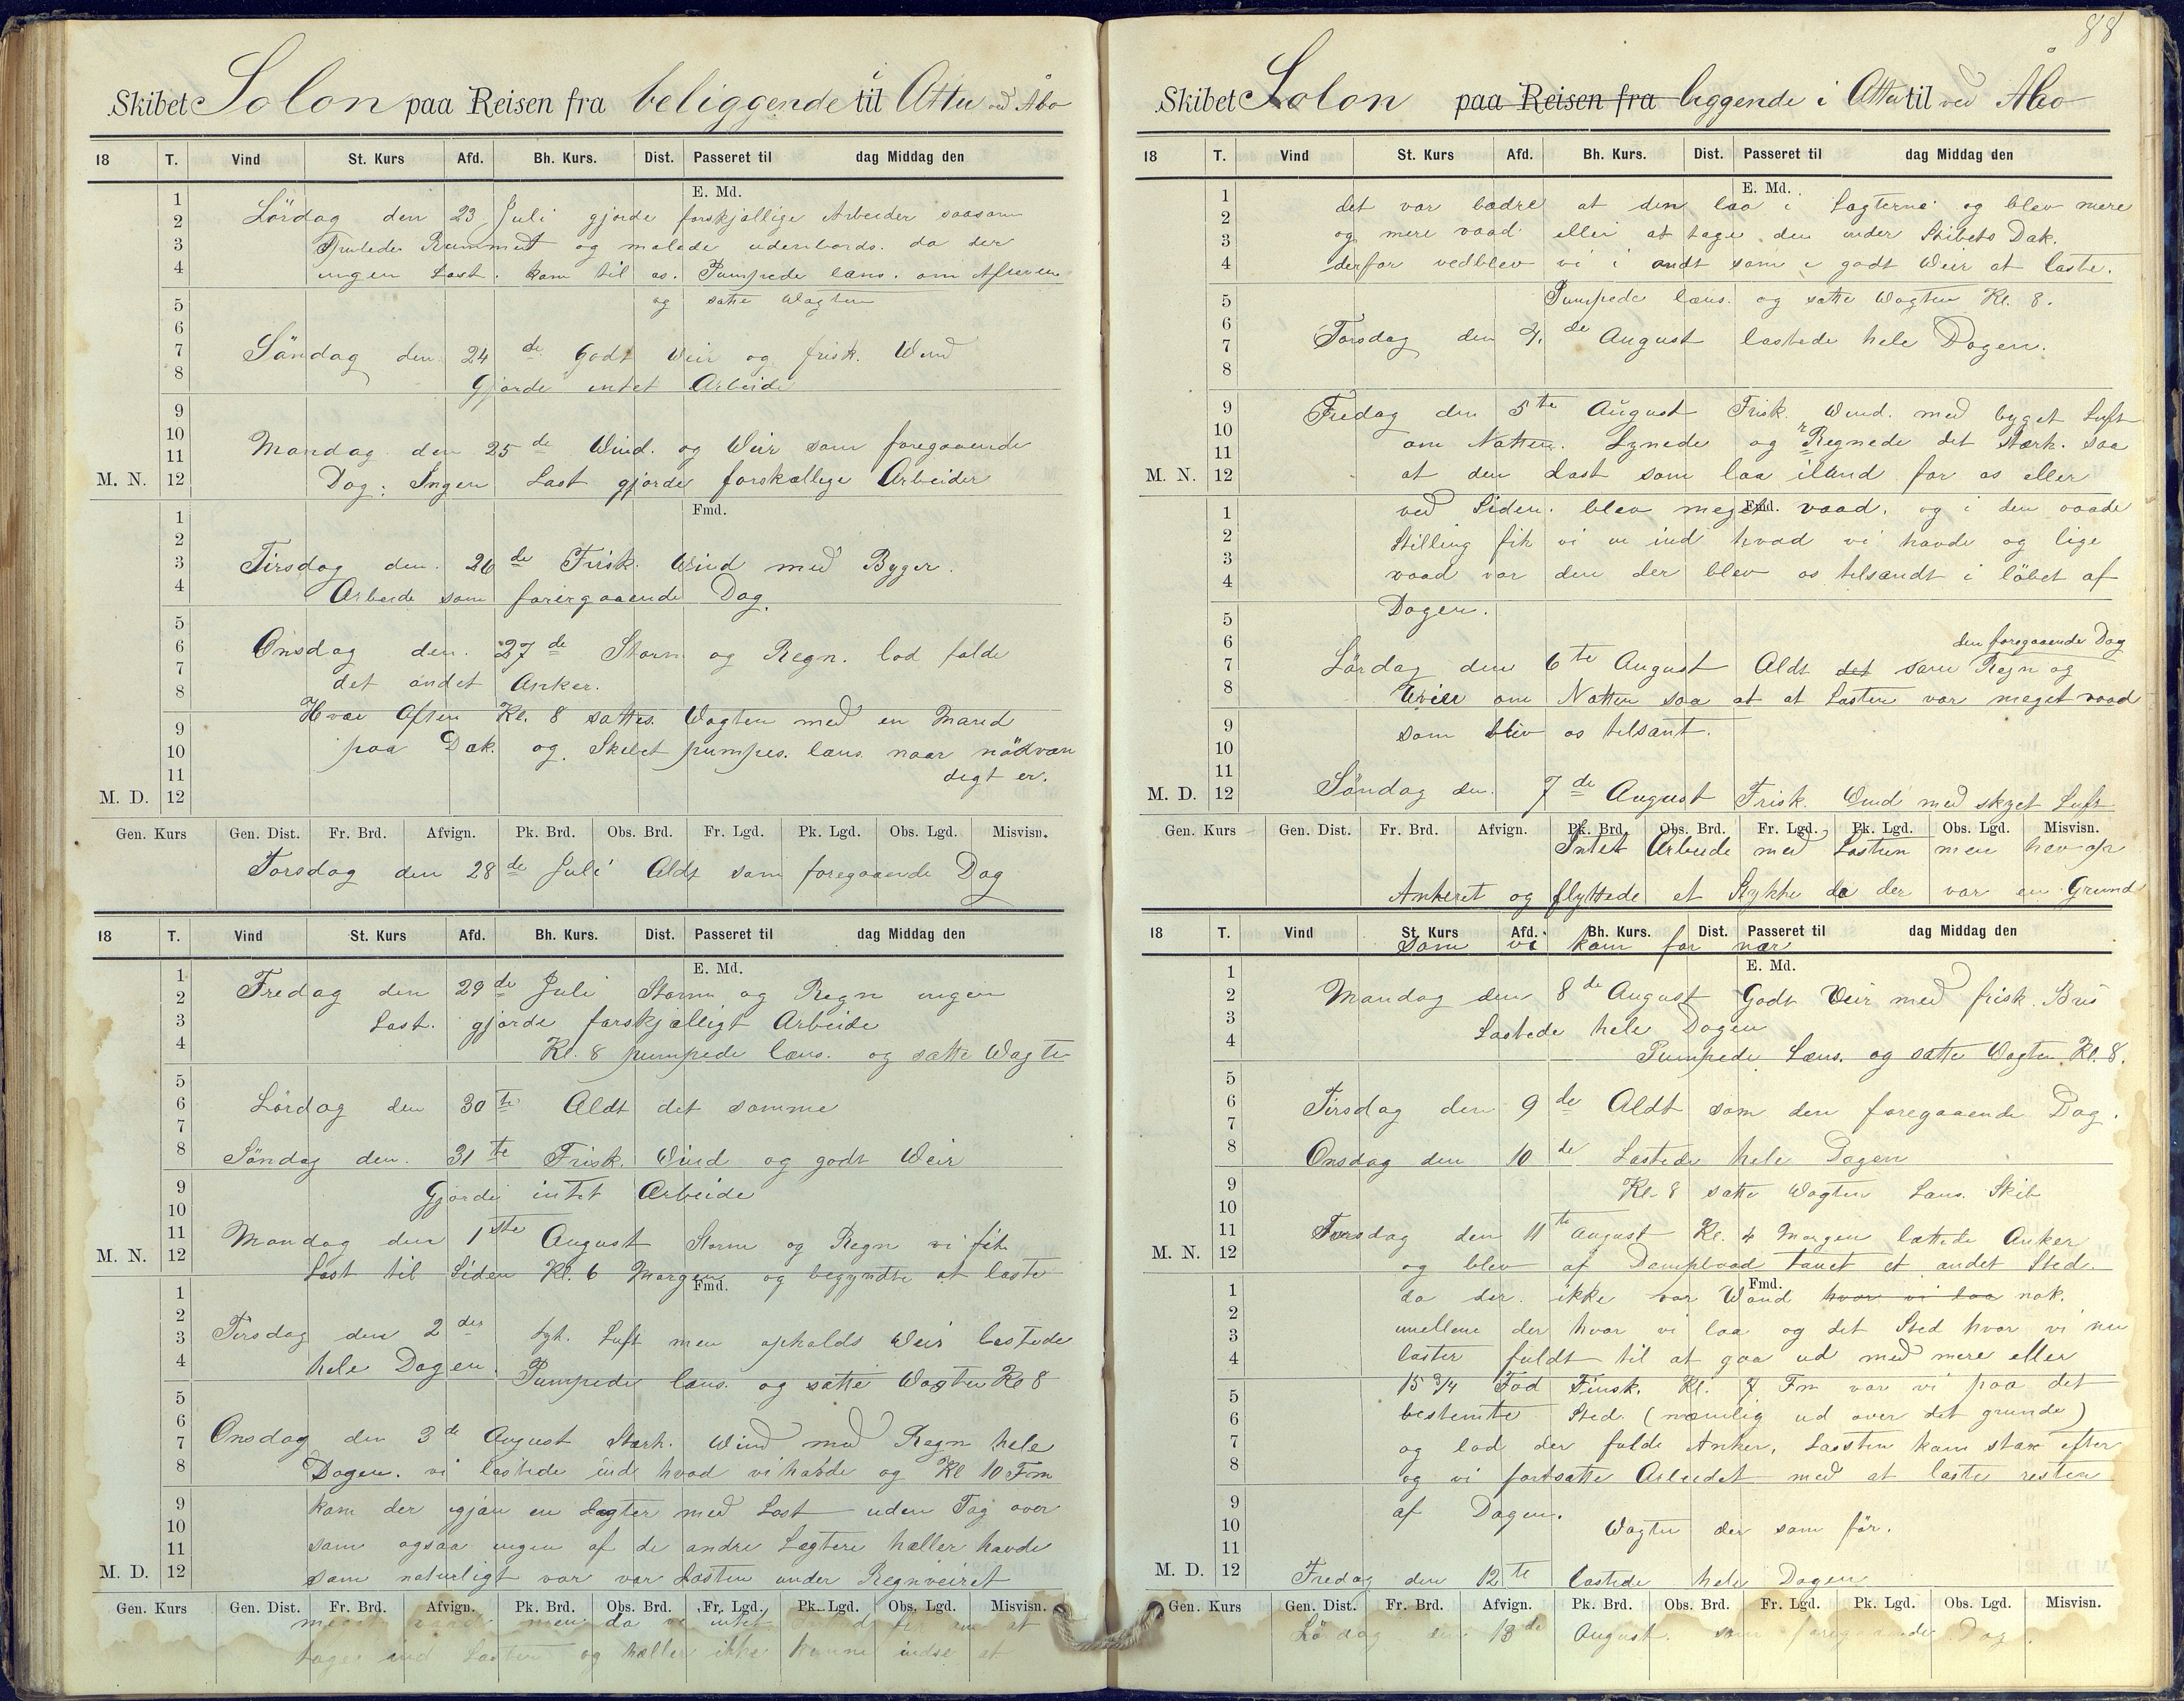 Skibet Solon paa Reisen fra beliggende til i Attu ved Åbo
18 T. Vind St. Kurs Afd. Bh. Kurs. Dist. Passeret til dag Middag den
E. Md.
1 2 3 4 5 6 7 8 9 10 11 12
Lördag den 23 Juli gjorde forskjællige Arbeider saasom
Spulede Rummet og malede udenbords. da der
ingen Last. kom til os. Pumpede læns. om Aftenen
og satte Wagten
Söndag den 24 de Godt Weir og frisk. Wind
Gjorde intet Arbeide
Mandag den 25 de Wind. og Weir som foregaaende
M. N.
Dag: Ingen Last gjorde forskællige Arbeider
Fmd.
1 2 3 4 5 6 7 8 9 10 11 12
Tirsdag den. 26 de Frisk. Wind med Byger.
Arbeide som forirgaaende Dag.
Onsdag den. 27 de Storm og Regn. lod falde
det andet Anker.
Hver Aften Kl. 8 sattes. Wagten med en Mand
paa Dæk. og. Skibet pumpes. læns naar nödvæn
digt er.
M. D.
Gen. Kurs Gen. Dist. Fr. Brd. Afvign. Pk. Brd. Obs. Brd. Fr. Lgd. Pk. Lgd. Obs. Lgd. Misvisn.
Torsdag den 28 de Juli Aldt som foregaaende Dag
18 T. Vind St. Kurs Afd. Bh. Kurs. Dist. Passeret til dag Middag den
E. Md.
1 2 3 4 5 6 7 8 9 10 11 12
Fredag den 29 de Juli Storm og Regn ingen
Last. gjorde forskjælligt Arbeide
Kl. 8 pumpede læns. og satte Wagte
Lördag den 30 te Aldt det samme
Söndag den. 31 te Frisk. Wind og godt Weir
Gjorde intet Arbeide
Mandag den 1 ste August Storm og Regn vi fik
M. N.
Last til Siden Kl. 6 Morgen og begyndte at laste
Fmd.
1 2 3 4 5 6 7 8 9 10 11 12
Tirsdag den 2 den tyk. Luft men opholds Weir lastede
hele Dagen. Pumpede læns. og satte Wagten Kl 8
Onsdag den 3 de August Stærk. Wind med Regn hele
Dagen. vi lastede ind hvad vi havde og Kl 10 Fm
kom der igjæn en Lægter med Last uden Tag over
som ogsaa ingen af de andre Lægtere hæller havde
som naturligt var var Lasten under Regnveiret
M. D.
Gen. Kurs Gen. Dist. Fr. Brd. Afvign. Pk. Brd. Obs. Brd. Fr. Lgd. Pk. Lgd. Obs. Lgd. Misvisn.
meget men da vi intet at
tage ind Lasten og hæller ikke kunne indse at
88
Skibet Solon paa Reisen fra liggende i Attu til ved Åbo
18 T. Vind St. Kurs Afd. Bh. Kurs. Dist. Passeret til dag Middag den
E. Md.
1 2 3 4 5 6 7 8 9 10 11 12
det var bædre at den laa i Lægterne og blev mere
og mere vaad eller at tage den under Skibets Dæk.
derfor vedblev vi i ondt som i godt Weir at laste.
Pumpede læns. og satte Wagten Kl. 8.
Torsdag den 4. de August lastede hele Dagen.
Fredag den 5 te August Frisk. Wind. med byget Luft
om Natten. Lynede og Regnede det Stærk. saa
M. N.
at den Last som laa iland for os eller
Fmd.
1 2 3 4 5 6 7 8 9 10 11 12
ved Siden. blev meget vaad. og i den vaade
Stilling fik vi ind hvad vi havde og lige
vaad var den der blev os tilsændt i löbet af
Dagen.
den foregaaende Dag
Lördag den 6 te August Aldt det som Regn og
Weir om Natten saa at at Lasten var meget vaad
som blev os tilsænt.
M. D.
Söndag den. 7 de August Frisk. Wind med skyet Luft
Gen. Kurs Gen. Dist. Fr. Brd. Afvign. Pk. Brd. Obs. Brd. Fr. Lgd. Pk. Lgd. Obs. Lgd. Misvisn.
Intet Arbeide med Lasten men hev op
Ankeret og flyttede et Stykke da der var en Grund
18 T. Vind St. Kurs Afd. Bh. Kurs. Dist. Passeret til dag Middag den
som vi kom for nær
E. Md.
1 2 3 4 5 6 7 8 9 10 11 12
Mandag den 8 de August Godt Veir med frisk. Bris
Lastede hele Dagen
Pumpede Læns. og satte Wagten Kl. 8.
Tirsdag den 9 de Aldt som den foregaaende Dag.
Onsdag den 10 de Lastede hele Dagen
Kl. 8 satte Wagten Læns. Skib
Torsdag den 11 te August Kl. 4 Morgen lættede Anker
M. N.
og blev af Dampbaad tauet et andet Sted.
Fmd.
1 2 3 4 5 6 7 8 9 10 11 12
da der. ikke var Wand hvor vi laa nok.
imellem der hvor vi laa og det Sted hvor vi nu
laster fuldt til at gaa ud med mere eller
15 3/4 Fod Finsk. Kl. 7 Fm var vi paa det
bestemte Sted. (næmlig ud over det grunde)
og lod der falde Anker, Lassten kom stax efter
og vi fortsatte Arbeidet med at laste resten
af Dagen.
Wagten der som för.
M. D.
Fredag den 12 te lastede hele Dagen
Gen. Kurs Gen. Dist. Fr. Brd. Afvign. Pk. Brd. Obs. Brd. Fr. Lgd. Pk. Lgd. Obs. Lgd. Misvisn.
Lördag den 13 de August. som foregaaende Dag.